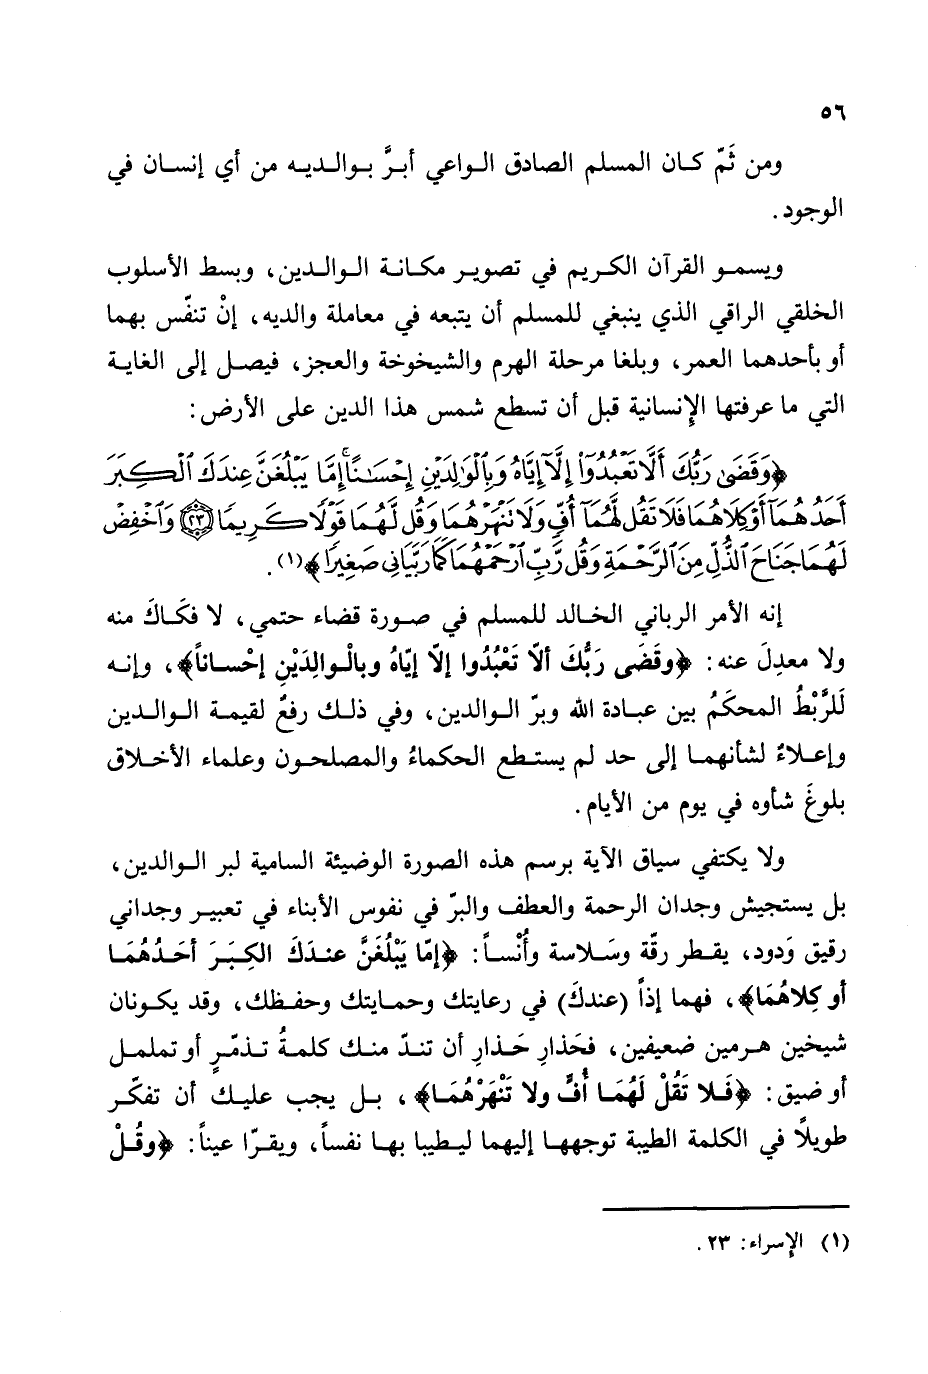 ٥٦
ومن ثَمّ كـان المسلم الصادق الـواعي أبـرَّ بـوالـديـه من أي إنسـان في
الوجود.
ويسمـو القرآن الكـريم في تصويـر مكـانـة الـوالـدين، وبسط الأسلوب
الخلقي الراقي الذي ينبغي للمسلم أن يتبعه في معاملة والديه، إنْ تنفّس بهما
أو بأحدهما العمر، وبلغا مرحلة الهرم والشيخوخة والعجز، فيصـل إلى الغايـة
التي ما عرفتها الإنسانية قبل أن تسطع شمس هذا الدين على الأرض:
﴿وَقَضَىٰ رَبُّكَ أَلَّا تَعْبُدُوٓا۟ إِلَّآ إِيَّاهُ وَبِٱلْوَٰلِدَيْنِ إِحْسَـٰنًا ۚ إِمَّا يَبْلُغَنَّ عِندَكَ ٱلْكِبَرَ
أَحَدُهُمَآ أَوْ كِلَاهُمَا فَلَا تَقُل لَّهُمَآ أُفٍّ وَلَا تَنْهَرْهُمَا وَقُل لَّهُمَا قَوْلًا كَرِيمًا ٢٣ وَٱخْفِضْ
لَهُمَا جَنَاحَ ٱلذُّلِّ مِنَ ٱلرَّحْمَةِ وَقُل رَّبِّ ٱرْحَمْهُمَا كَمَا رَبَّيَانِى صَغِيرًا﴾(١).
إنه الأمر الرباني الخـالد للمسلم في صـورة قضاء حتمي، لا فكَـاكَ منه
ولا معدِلَ عنه: ﴿وقَضَى رَبُّكَ ألاّ تَعْبُدُوا إلاّ إيّاهُ وبالْـوالِدَيْنِ إحْساناً﴾، وإنـه
لَلرَّبْطُ المحكَمُ بين عبـادة الله وبرّ الـوالدين، وفي ذلـك رفعٌ لقيمـة الـوالـدين
وإعـلاءٌ لشأنهمـا إلى حد لم يستـطع الحكماءُ والمصلحـون وعلماء الأخـلاق
بلوغَ شأوه في يوم من الأيام.
ولا يكتفي سياق الآية برسم هذه الصورة الوضيئة السامية لبر الـوالدين،
بل يستجيش وجدان الرحمة والعطف والبرّ في نفوس الأبناء في تعبيـر وجداني
رقيق وَدود، يقطـر رقّة وسَـلاسة وأُنْسـاً: ﴿إمّا يَبْلُغَنَّ عنـدَكَ الكِبَـرَ أحَـدُهُمَـا
أو كِلاهُمَا﴾، فهما إذاً (عندكَ) في رعايتك وحمـايتك وحفـظك، وقد يكـونان
شيخين هـرمين ضعيفين، فحَذارِ حَـذارِ أن تنـدّ منـك كلمـةُ تـذمّـرٍ أو تململ
أو ضيق: ﴿فَـلا تَقُلْ لَهُمَـا أُفٍّ ولا تَنْهَرْهُمَـا﴾، بـل يجب عليـك أن تفكّـر
طويلاً في الكلمة الطيبة توجههـا إليهما ليـطيبا بهـا نفساً، ويقـرّا عيناً: ﴿وقُـلْ
(١) الإسراء: ٢٣.